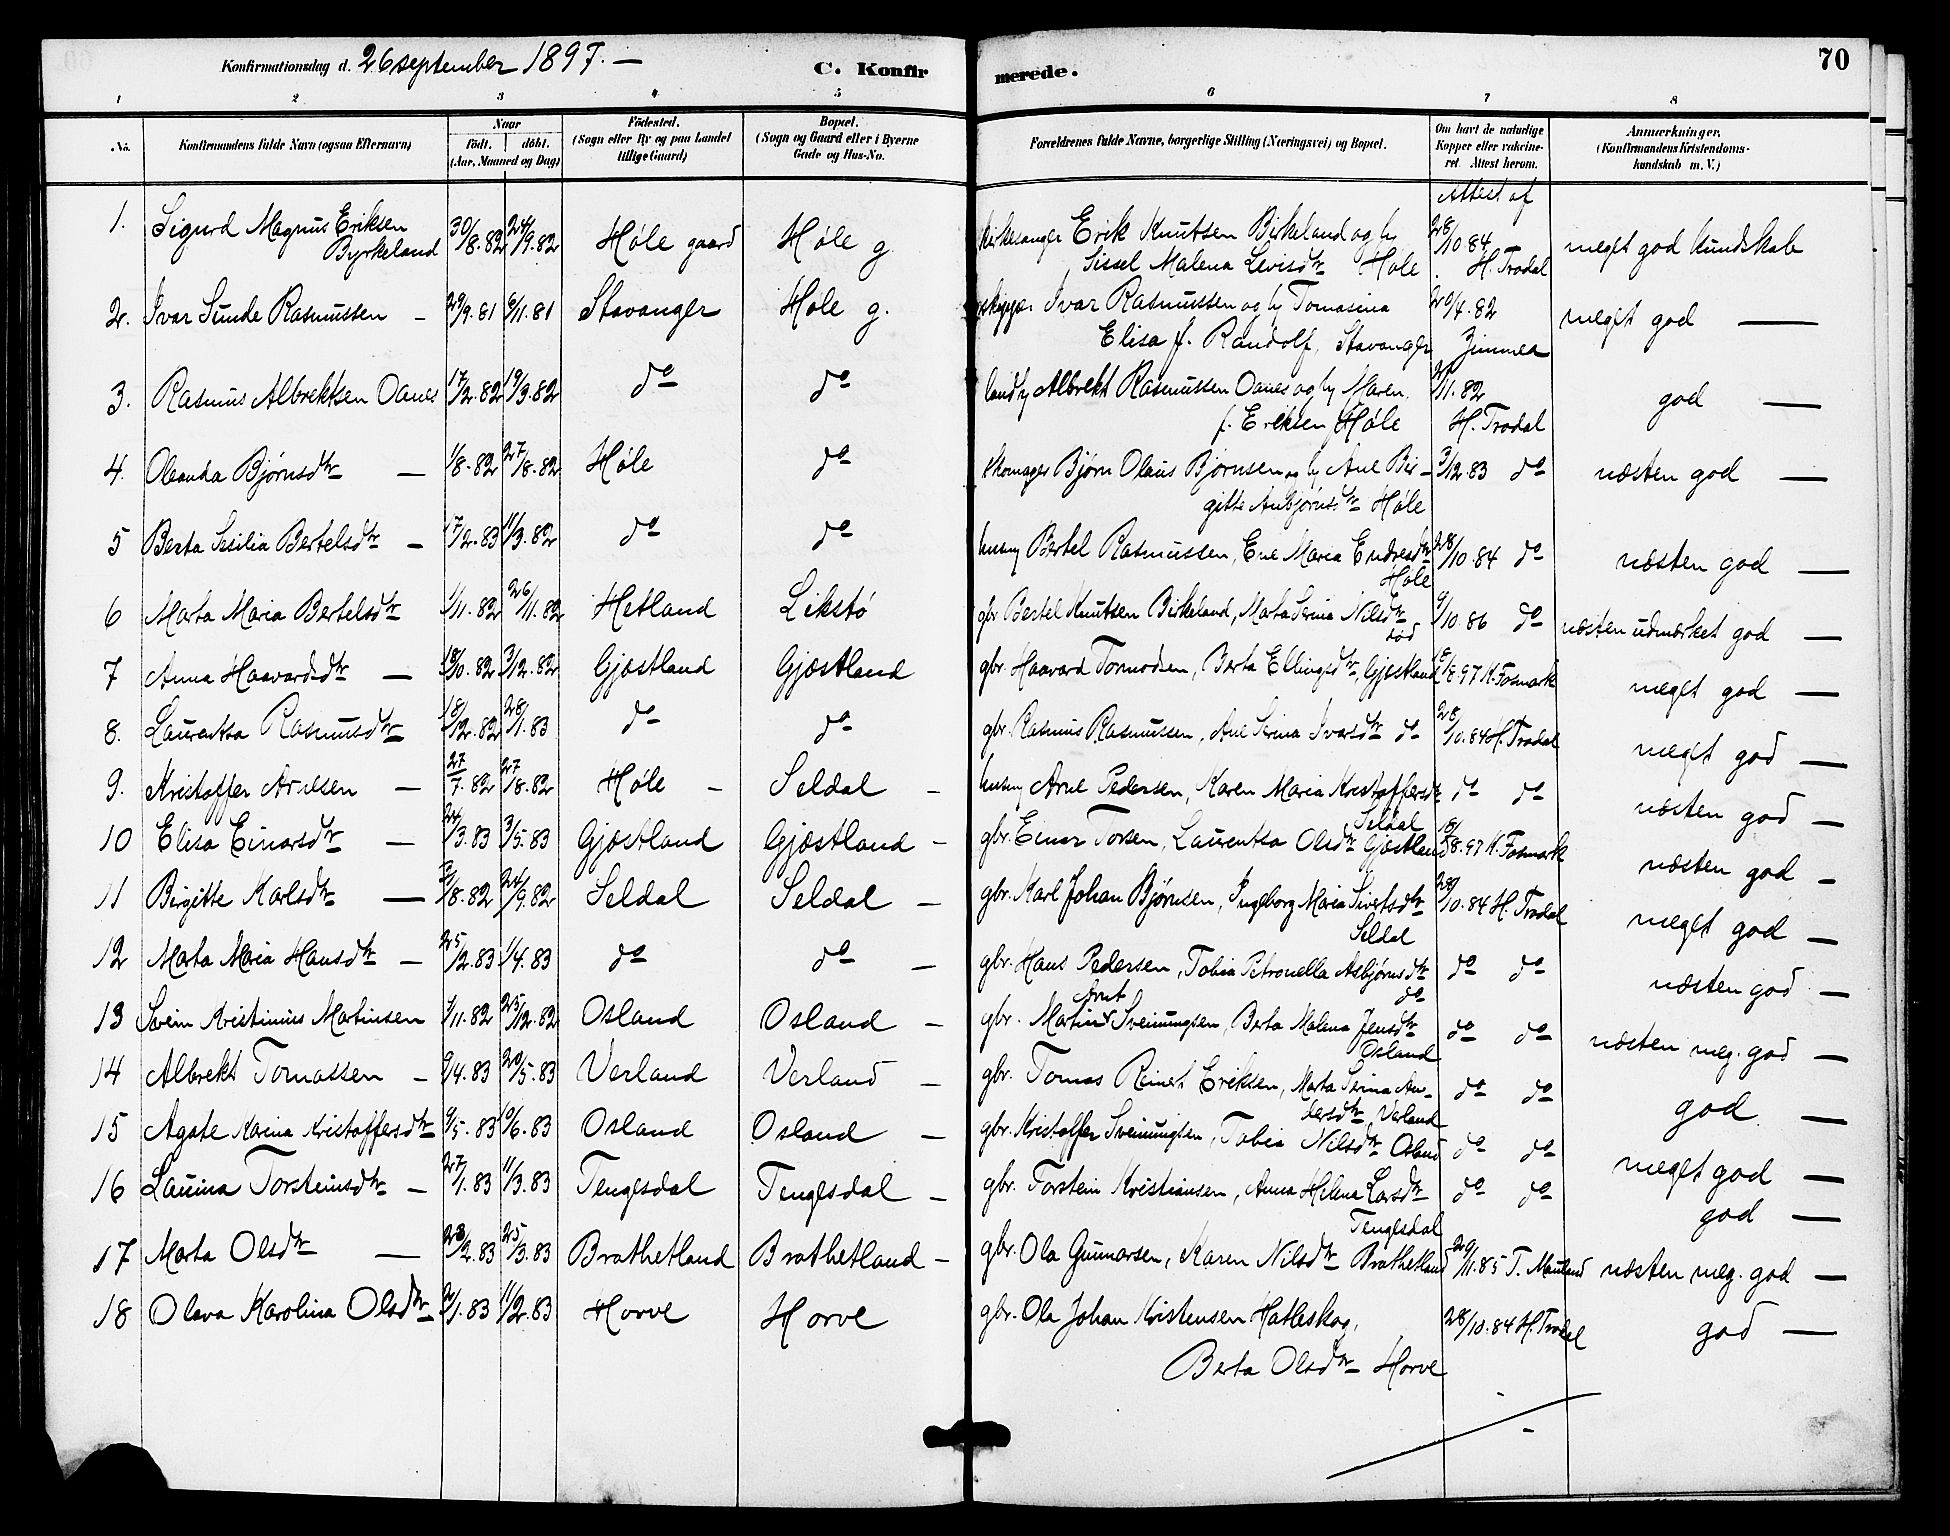 Konfirmationsdag d. 26 september 1897. —
C. Konfirmerede.
70
1 2 3 4 5 6 7 8
No. Konfirmandens fulde Navn (ogsaa Efternavn) Naar født. døbt. (Aar, Maaned og Dag) Fødested. (Sogn eller By og paa Landet tillige Gaard) Bopæl. (Sogn og Gaard eller i Byerne Gade og Hus-No. Forældrenes fulde Navne, borgerlige Stilling (Næringsvei) og Bopæl. Om havt de naturlige Kopper eller vakcineret Attest herom. Anmærkninger. (Konfirmandens Kristendomskundskab m. V.)
Attest af
1. Sigurd Magnus Eriksen Byrkeland 30/8.82 24/9.82 Høle gaard Høle g. kirkesanger Erik Knutsen Birkeland og h 28/10 84 meget god kundskab
Sissel Malena Levisdtr Høle H. Trodal
2. Ivar Sunde Rasmussen — 29/9.81 6/11.81 Stavanger Høle g. Ivar Rasmussen og h Tomasina 20/4.82 meget god —
Elisa f. Randolf, Stavanger Zimmer
3. Rasmus Albrektsen Oanes 17/2.82 19/3.82 do do Albrekt Rasmussen Oanes og h Maren /11.82 god —
f. Eriksen Høle H. Trodal
4. Oleanda Bjørnsdtr — 1/8.82 27/8.82 Høle do skomager Bjørn Olaus Bjørnsen og h Ane Bir- 3/12.83 do næsten god —
gitte Asbjørnsdtr Høle
5 Berta Sesilia Bertelsdtr — 17/2.83 11/3.82 do do husm Bertel Rasmussen, Ene Maria Endresdtr 28/10.84 do næsten god —
Høle
6 Marta Maria Bertelsdtr 1/11.82 26/11.82 Hetland Likstø gbr Bertel Knutsen Birkeland, Marta Serina Nilsdtr 9/10.86 do næsten udmærket god —
død
7 Anna Haavardsdtr — 18/10.82 3/12.82 Gjæstland Gjæstland gbr. Haavard Tormodsen, Berta Ellingsdtr, Gjæstland 18/8.97 K. Fosmark meget god —
8. Laurentsa Rasmusdtr 18/12.82 28/1.83 do do gbr. Rasmus Rasmussen, Ane Serina Ivarsdtr do 28/10.84 H. Trodal meget god —
9. Kristoffer Arnesen — 27/7.82 27/8.82 Høle — Seldal — husm Arne Pedersen, Karen Maria Kristoffersdtr do do næsten god —
Seldal
10 Elisa Einarsdtr — 24/3.83 3/5.83 Gjæstland Gjæstland — gbr. Einar Torsen, Laurentsa Olsdtr Gjæstland 18/8.97 K. Fosmark næsten god —
11 Birgitte Karlsdtr — /8.82 24/9.82 Seldal Seldal — gbr. Karl Johan Bjørnsen, Ingeborg Maria Sivertsdtr 28/10.84 H. Trodal meget god —
Seldal
12 Marta Maria Hansdtr — 25/2.83 1/4.83 do do — gbr. Hans Pedersen, Tobia Petronella Asbjørnsdtr do do næsten god —
do
13 Svein Kristinius Martinsen 7/11.82 25/12.82 Osland Osland — gbr. Martin Arnt Sveinungsen, Berta Malena Jensdtr do do næsten meg. god —
Osland
14 Albrekt Tomassen — 9/4.83 20/5.83 Verland Verland — gbr. Tomas Reinert Eriksen, Marta Serina An- do do god —
dersdtr Verland
15 Agate Karina Kristoffersdtr 9/5.83 10/6.83 Osland Osland — gbr. Kristoffer Sveinungsen, Tobia Nilsdtr Osland do do meget god —
16 Laurina Torsteinsdtr — 27/1.83 11/3.83 Tengesdal Tengesdal — gbr. Torstein Kristiansen, Anna Helena Larsdtr do do god —
Tengesdal
17 Marta Olsdtr — 23/2.83 25/3.83 Brathetland Brathetland — gbr. Ola Gunnarsen, Karen Nilsdtr Brathetland 29/11.85 T. Mauland næsten meg. god —
18 Olava Karolina Olsdtr 2/1.83 11/2.83 Horve Horve gbr. Ola Johan Kristensen Hatleskog, 28/10.84 H. Trodal god —
Berta Olsdtr Horve